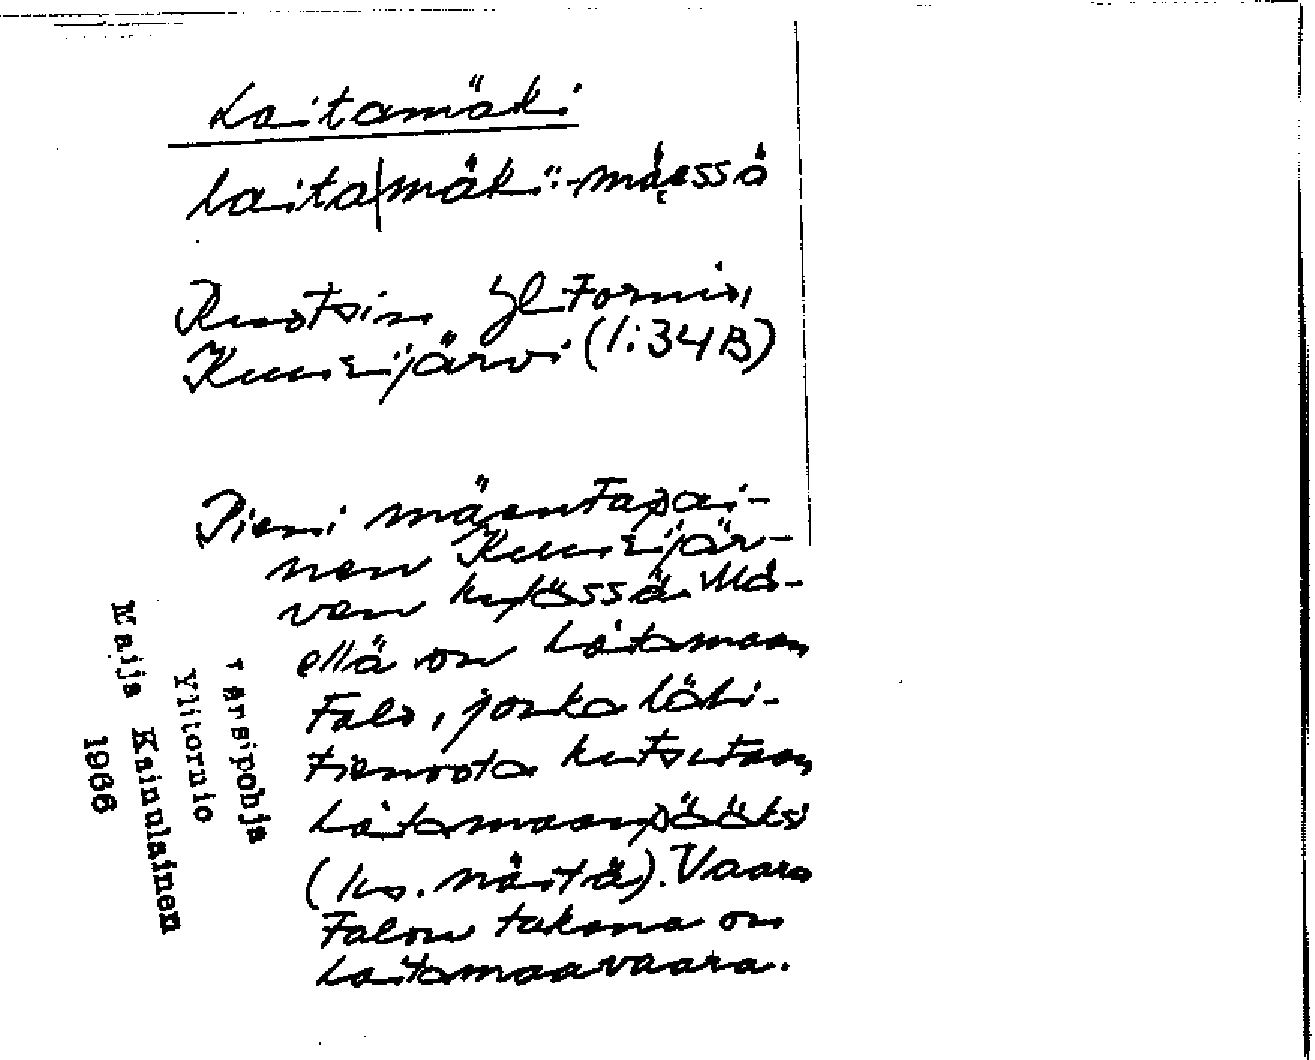 Laitamäki
laita|mäki: -mäessä
Ruotsin Yl.Tornio,
Kuusijärvi (1:34B)
Pieni mäentapai-
nen Kuusijär-
ven kylässä. Mä-
ellä on Laitamaan
talo, jonka lähi-
tienoota kutsutaan
Laitamaanpääksi
(ks. näitä). Vaara
Talon takana on
Laitamaavaara.
Länsipohja
Ylitornio
Maija Kainulainen
1966